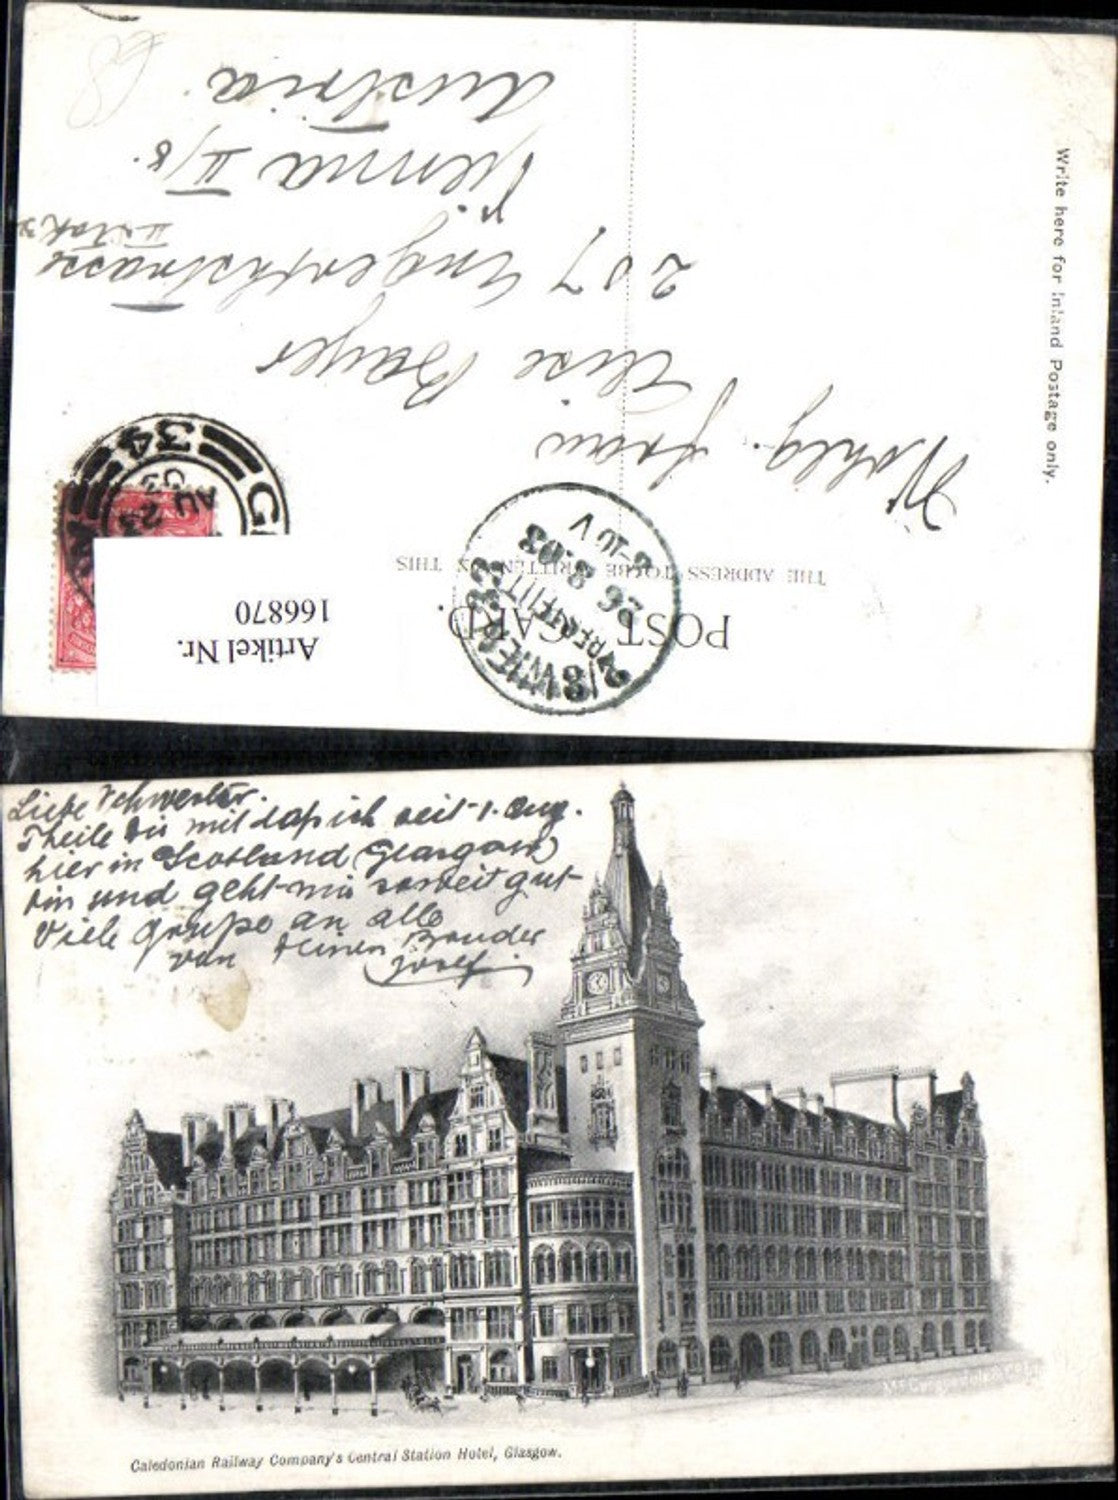 Write here for Inland Postage only.
POST CARD.
THE ADDRESS TO BE WRITTEN ON THIS
Wohlg. Frau
Elise Bayer
207 Engerthstrasse
II Stock
Vienna II/8.
Austria.
68
34
AU 23
03
26 8.03
8-10 V
Artikel Nr.
166870
Liebe Schwester.
Theile dir mit daß ich seit 1. Aug.
hier in Scotland (Glasgow)
bin und geht mir soweit gut
Viele Grüße an alle
von Deinen Bruder
Josef
Caledonian Railway Company's Central Station Hotel, Glasgow.